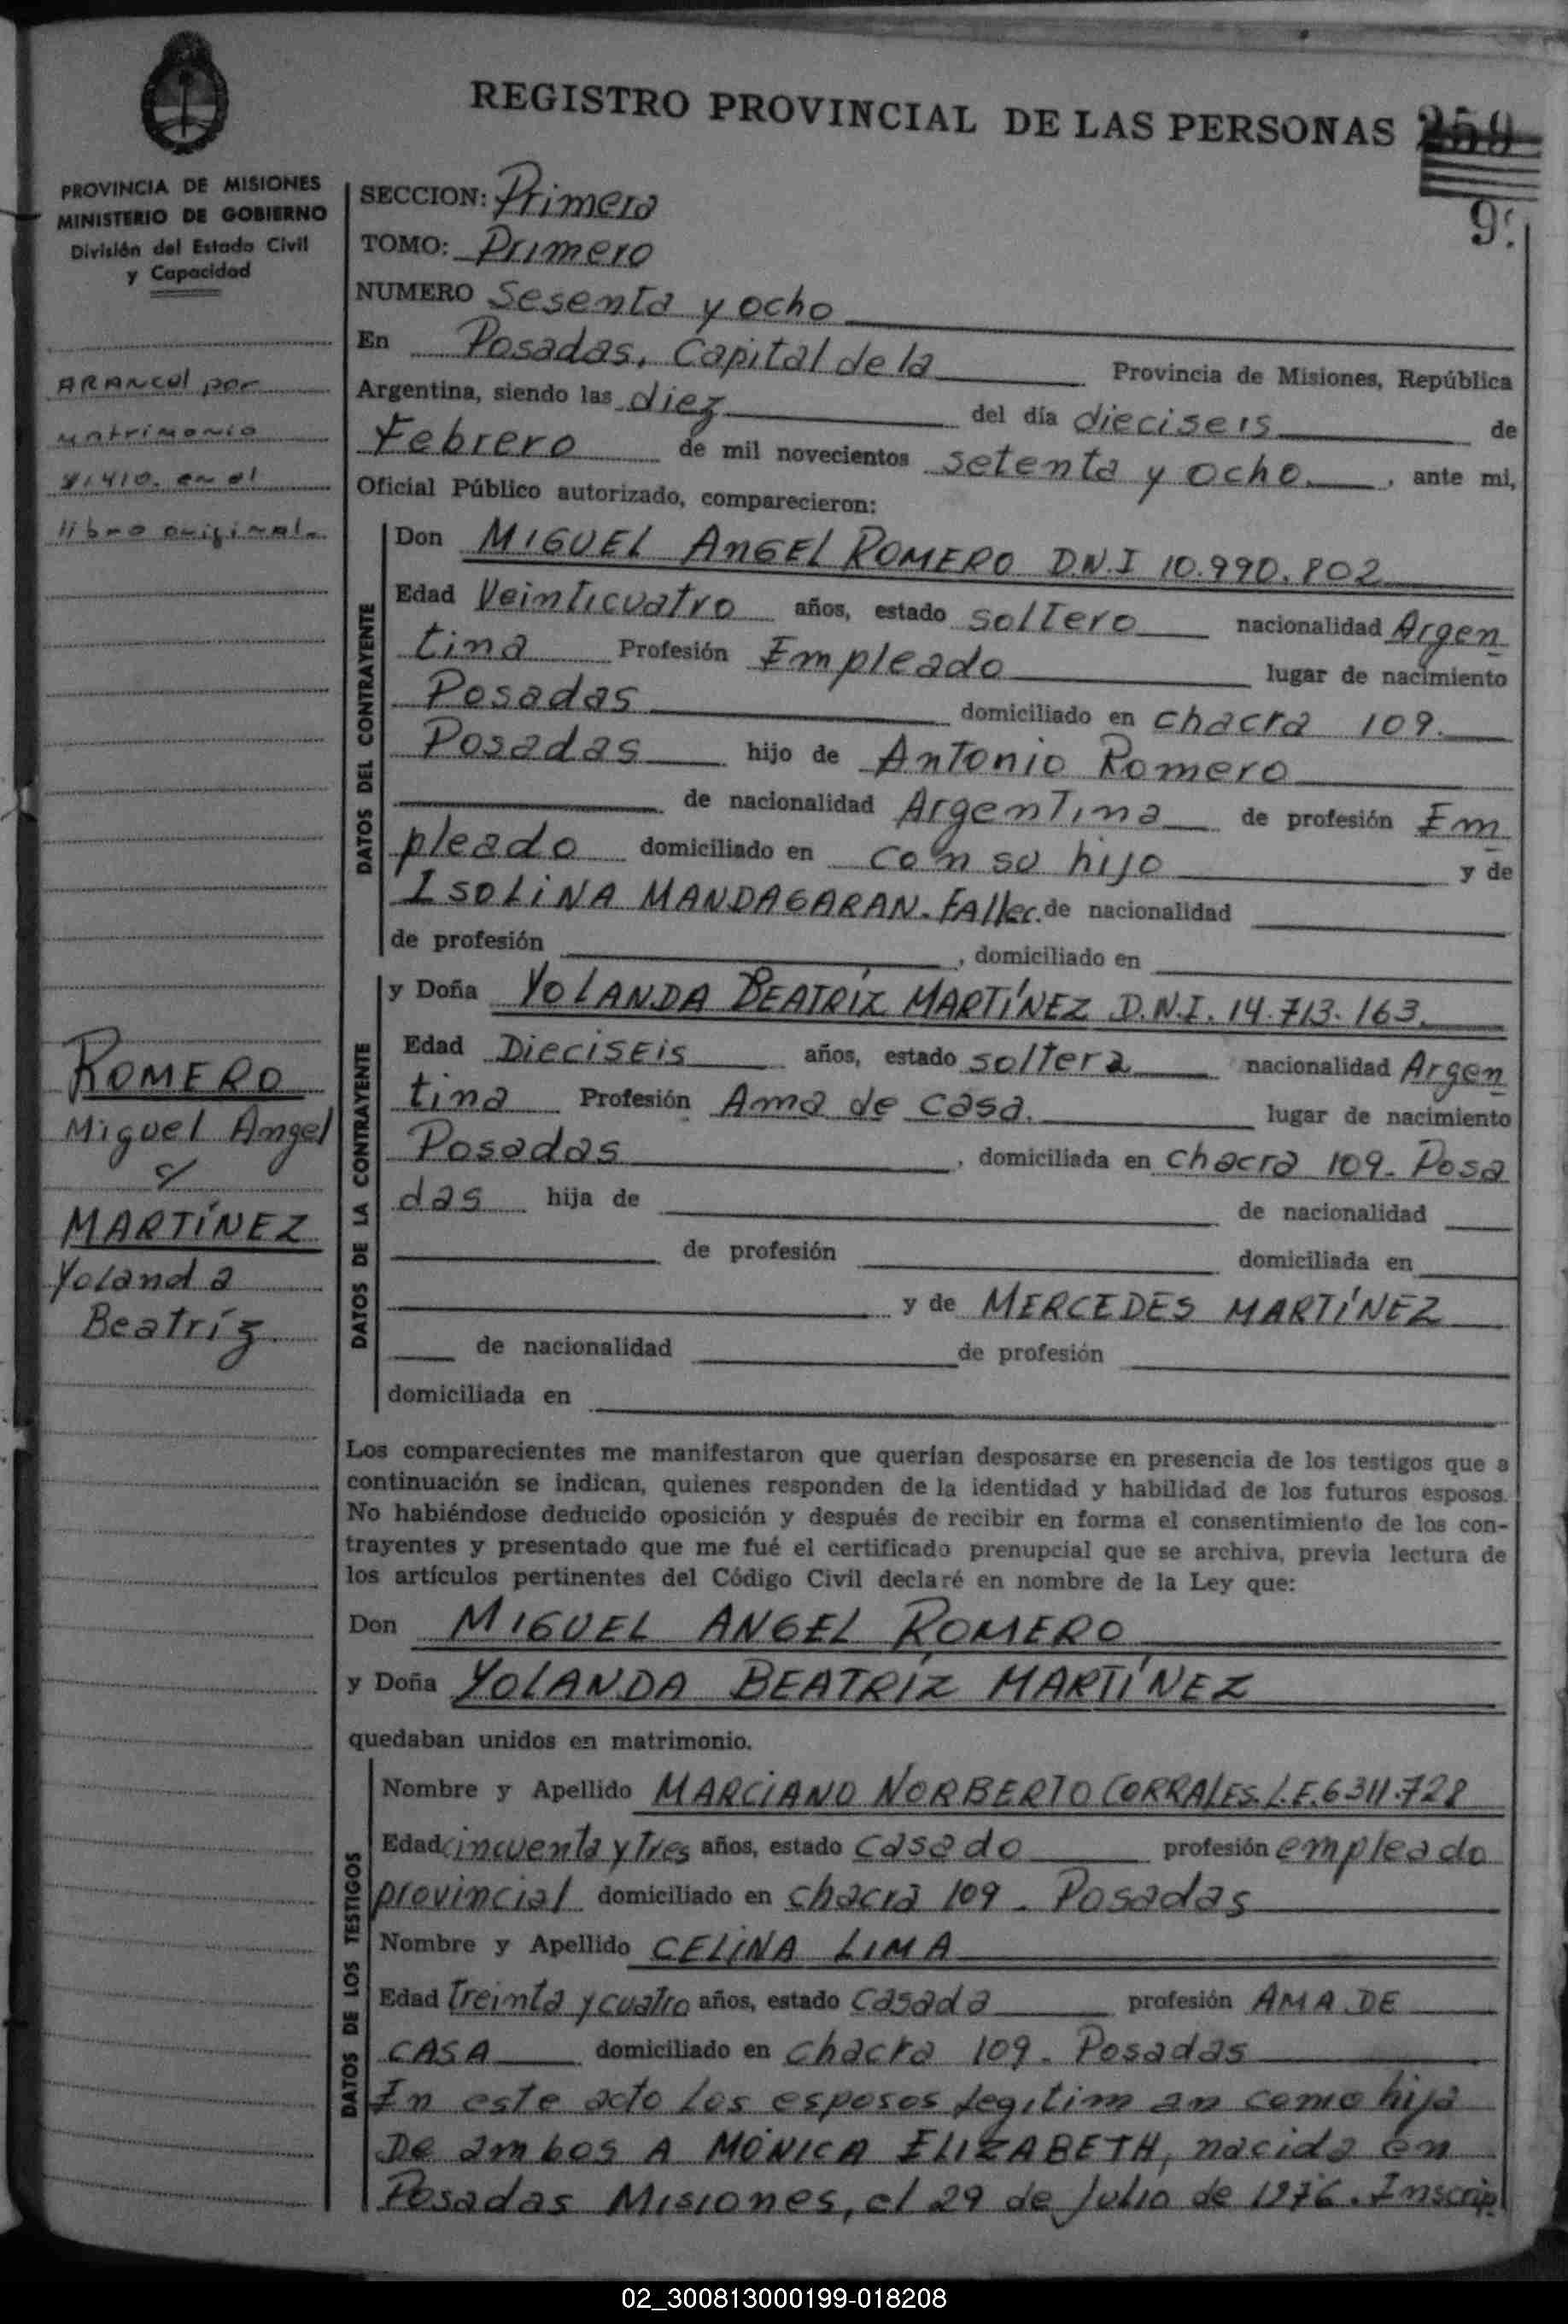 REGISTRO PROVINCIAL DE LAS PERSONAS 259
9
PROVINCIA DE MISIONES
MINISTERIO DE GOBIERNO
División del Estado Civil
y Capacidad
ARANCEL por
matrimonio
en el
libro original
ROMERO
Miguel Angel
c/
MARTÍNEZ
Yolanda
Beatríz
SECCION: Primera
TOMO: Primero
NUMERO Sesenta y ocho
En Posadas, Capital de la Provincia de Misiones, República
Argentina, siendo las diez del día dieciseis de
Febrero de mil novecientos setenta y ocho, ante mi,
Oficial Público autorizado, comparecieron:
DATOS DEL CONTRAYENTE
Don MIGUEL ANGEL ROMERO D.N.I 10.990.802
Edad Veinticuatro años, estado soltero nacionalidad Argen
tina Profesión Empleado lugar de nacimiento
Posadas domiciliado en chacra 109.
Posadas hijo de Antonio Romero
de nacionalidad Argentina de profesión Em
pleado domiciliado en con su hijo y de
ISOLINA MANDAGARAN. FAllec. de nacionalidad
de profesión , domiciliado en
DATOS DE LA CONTRAYENTE
y Doña YOLANDA BEATRÍZ MARTÍNEZ D.N.I. 14.713.163.
Edad Dieciseis años, estado soltera nacionalidad Argen
tina Profesión Ama de casa. lugar de nacimiento
Posadas , domiciliada en chacra 109. Posa
das hija de de nacionalidad
de profesión domiciliada en
y de MERCEDES MARTÍNEZ
de nacionalidad de profesión
domiciliada en
Los comparecientes me manifestaron que querían desposarse en presencia de los testigos que a
continuación se indican, quienes responden de la identidad y habilidad de los futuros esposos.
No habiéndose deducido oposición y después de recibir en forma el consentimiento de los con-
trayentes y presentado que me fué el certificado prenupcial que se archiva, previa lectura de
los artículos pertinentes del Código Civil declaré en nombre de la Ley que:
Don MIGUEL ANGEL ROMERO
y Doña YOLANDA BEATRÍZ MARTÍNEZ
quedaban unidos en matrimonio.
DATOS DE LOS TESTIGOS
Nombre y Apellido MARCIANO NORBERTO CORRALES. L.E. 6311.728
Edad cincuenta y tres años, estado casado profesión empleado
provincial domiciliado en chacra 109. Posadas
Nombre y Apellido CELINA LIMA
Edad Treinta y cuatro años, estado casada profesión AMA DE
CASA domiciliado en chacra 109. Posadas
En este acto los esposos legitiman como hija
De ambos A MÓNICA ELIZABETH, nacida en
Posadas Misiones, el 29 de Julio de 1976. Inscrip
02_300813000199-018208